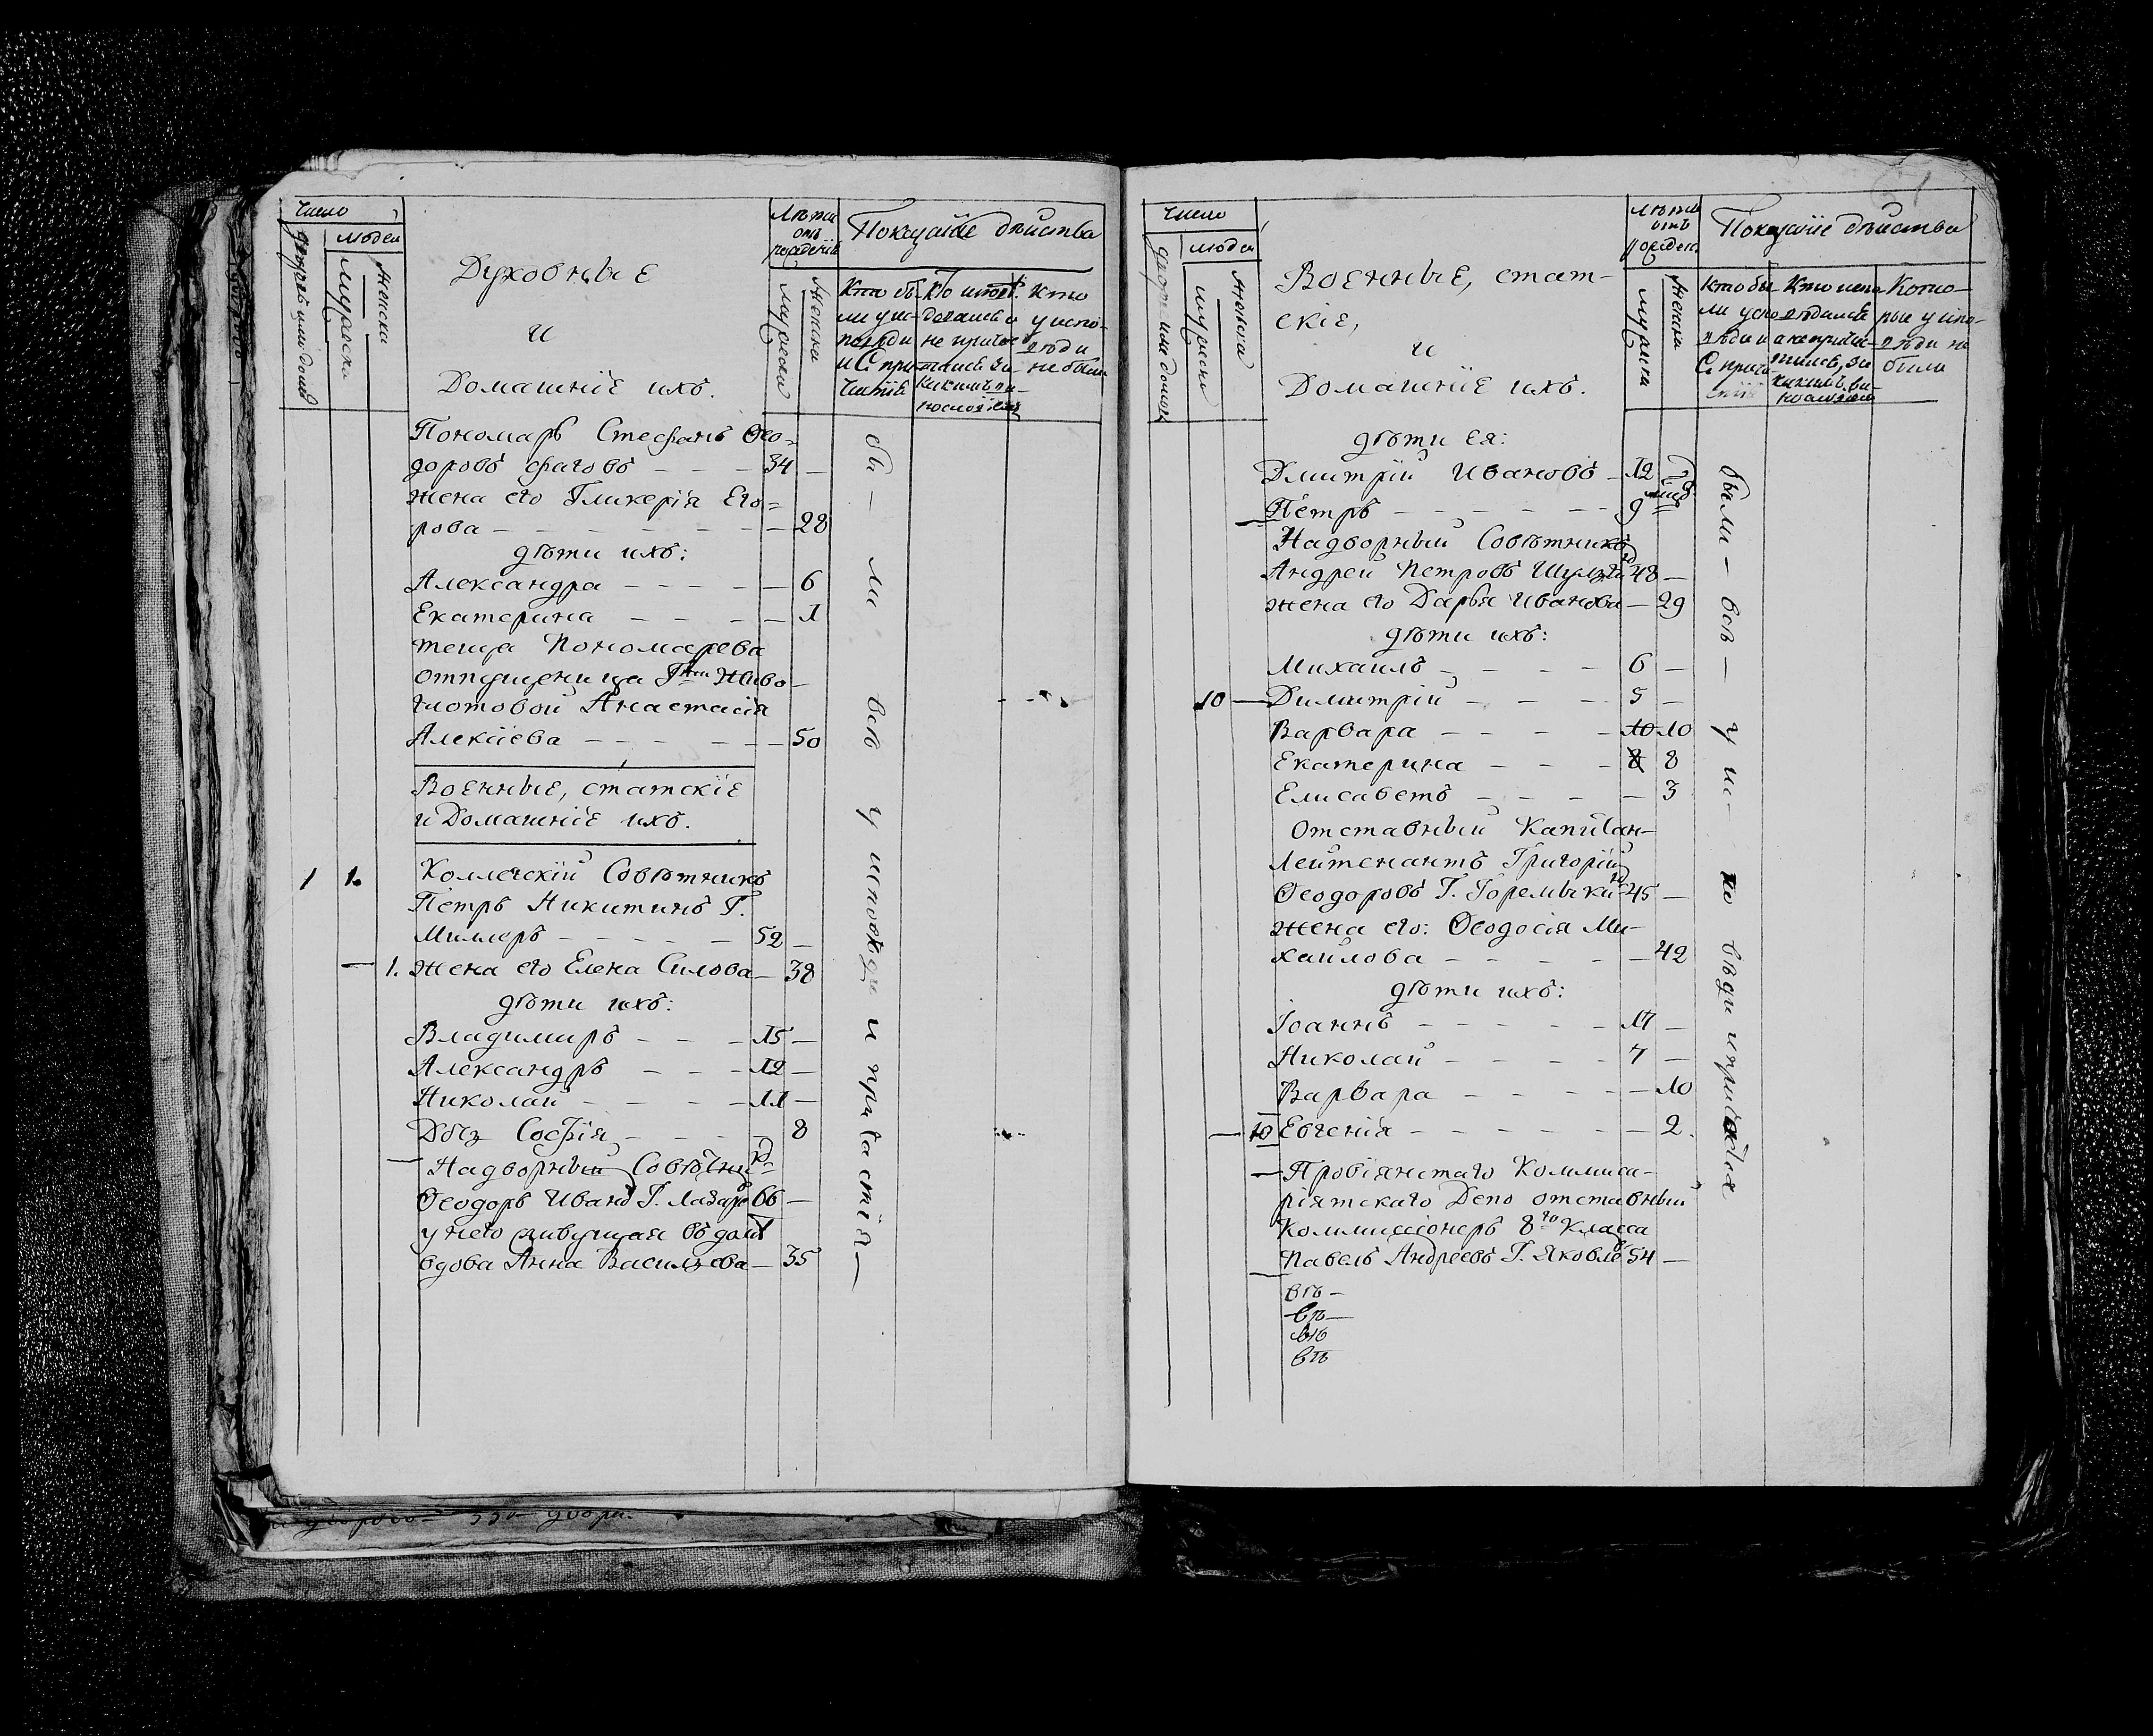 Число
людей
мужеска
женска
Духовные
и
Домашнїе ихъ.
Лѣта
отъ
рожденїя
мужеска
женска
Показанїе дѣйства
Кто бы-
ли у ис-
повѣди
и С. при-
частїя
Кто
у испо-
вѣди
не были
Пономарь Стефанъ Ѳео=
доровъ — — — 34 —
жена его Гликерїя Его=
рова — — — — — 28
дѣти ихъ:
Александра — — — — — 6
Екатерина — — — — 1
теща Пономарева
отпущеница Гжи Живо-
глотовой Анастасїя
Алексїева — — — — — 50
Военные, статскїе
и Домашнїе ихъ.
1 1. Коллежскїй Совѣтникъ
Петръ Никитинъ Г.
Миллеръ — — — — 52 —
— 1. жена его Елена Силова — 38
дѣти ихъ:
Владимиръ — — — 15 —
Александръ — — — 12 —
Николай — — — — 11 —
Дочь Софїя — — — — 8
Надворный Совѣтникъ
Ѳеодоръ Иванъ Г. Лазаревъ 66 —
у него живущая въ домѣ
вдова Анна Васильева — 35
бы — ли всѣ у исповѣди и причастїя —
Число
людей
мужеска
женска
Военные, стат-
скїе,
и
Домашнїе ихъ.
Лѣта
отъ
рожденїя
мужеска
женска
Показанїе дѣйства
Кто бы-
ли у испо-
вѣди и
С. прича-
стїя
Кото-
рые у испо-
вѣди не
были
дѣти ея:
Дмитрїй Ивановъ — 12
Петръ — — — — — 9
Надворный Совѣтникъ
Андрей Петровъ 48 —
жена его Дарья Иванова — 29
дѣти ихъ:
Михаилъ — — — — 6 —
10 — Димитрїй — — — 5 —
Варвара — — — — 10 10
Екатерина — — — 8 8
Елисаветъ — — — — — 3
Отставный Капитан-
Лейтенантъ Григорїй
Ѳеодоровъ Г. Горемыкинъ 45 —
жена его: Ѳеодосїя Ми-
хайлова — — — — — 42
дѣти ихъ:
Їоаннъ — — — — — 11 —
Николай — — — — 7 —
Варвара — — — — — 10
— 10 Евгенїя — — — — — — 2.
— Провїянтскаго Коммиса-
рїятскаго Депо отставный
Коммиссїонеръ 8го Класса
Павелъ Андреевъ Г. Яковлевъ 54 —
вѣ —
вѣ —
вѣ
вѣ
были — всѣ — у ис — по вѣди и причастїя